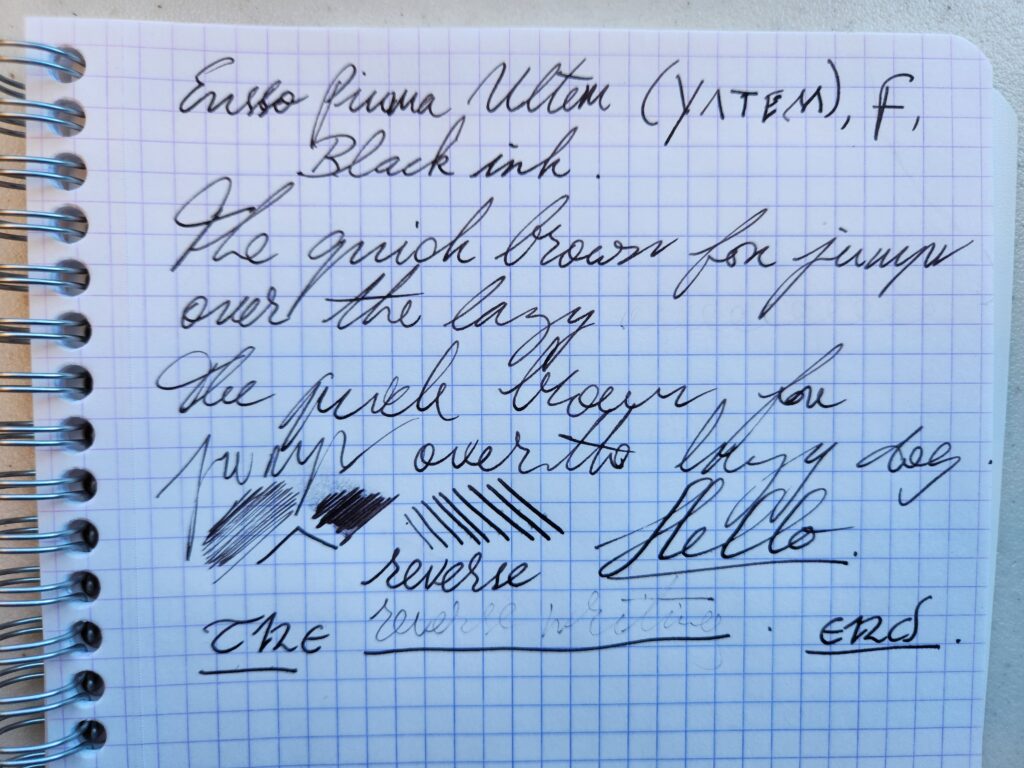 Ensso Piuma Ultem (УЛТЕМ), F,
Black ink.
The quick brown fox jump
over the lazy
The quick brown fox
jump over the lazy dog.
Hello.
reverse
reverse writing.
THE END.